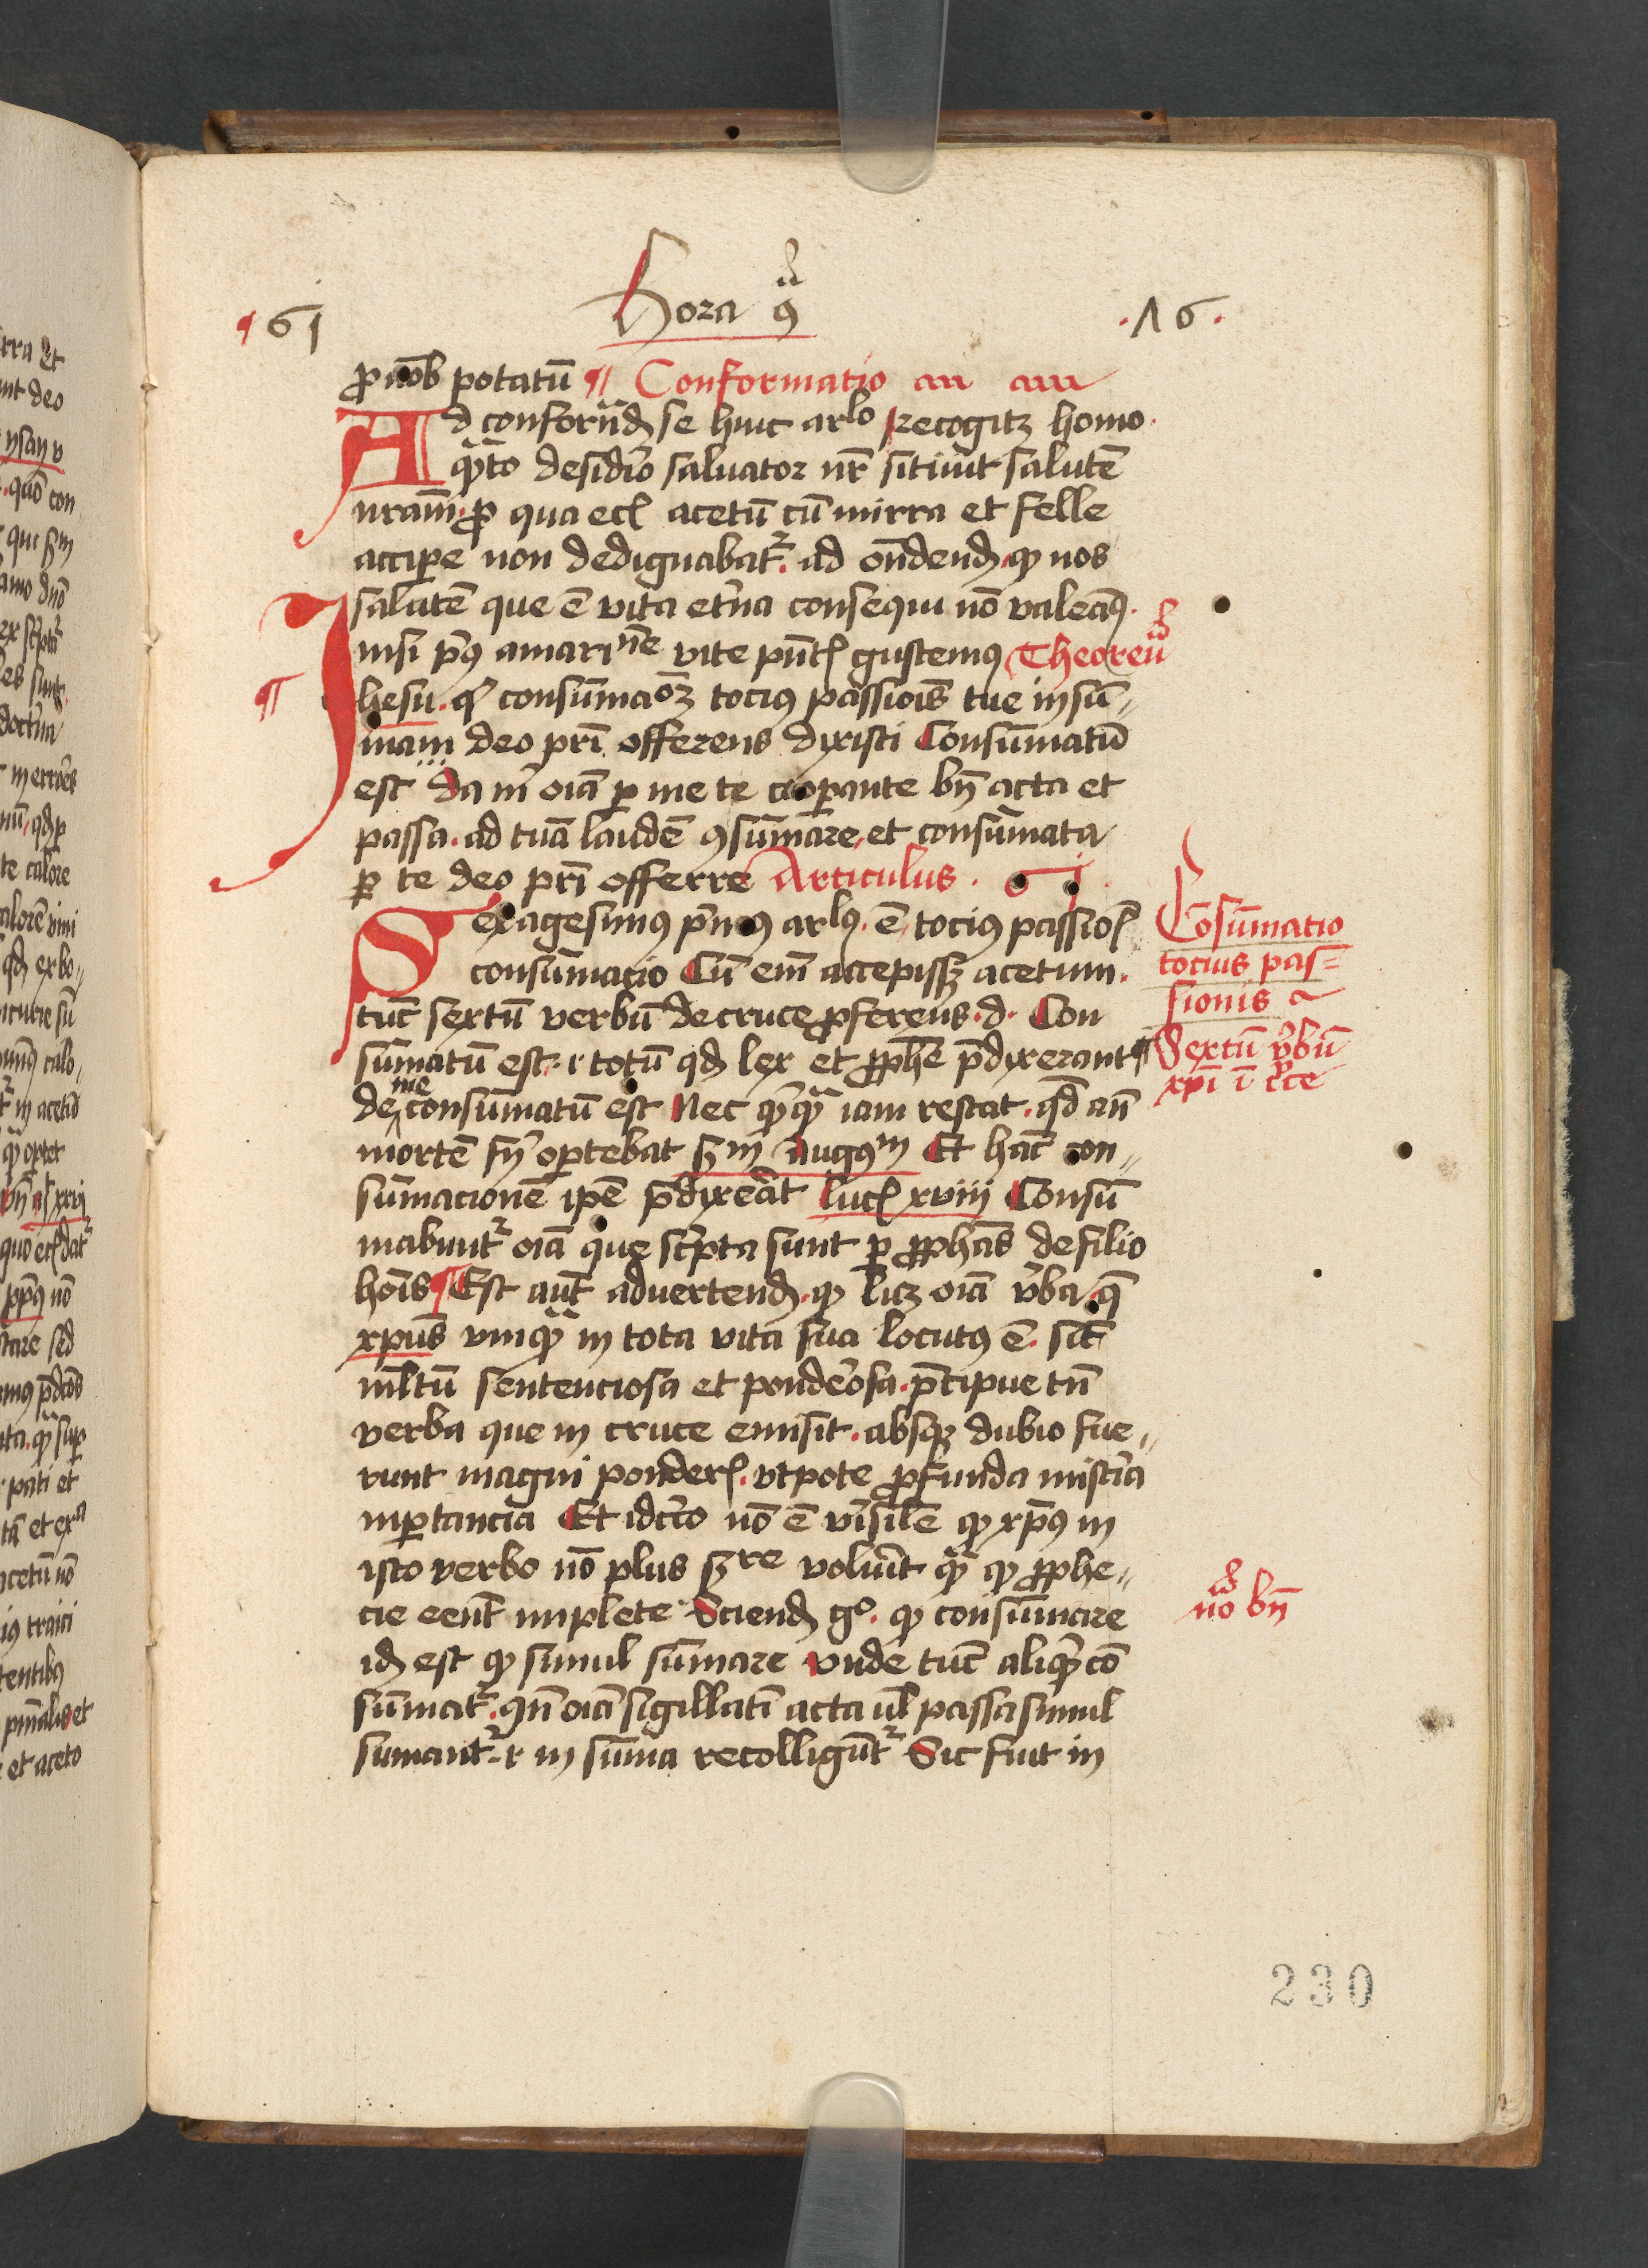 61
Hora 9ᵃ
.16.
ꝓ nob̄ potatū ¶ Conformatio
Ad conformād se huic arlo Recogitꝫ homo
qͣto desid̾io saluator nr̄ sitiuit salutē
nr̄am. ꝓ qua ecꝫ acetū cū mirra et felle
accipe non dedignabat᷑. ad on̄dend. ꝙ nos
salutē que ē vita et̾na consequi nō valeaꝰ.
nisi pͥꝰ amaritudīe vite pn̄tꝭ gustemꝰ Theoreū
Ihesu. qͥ consūmacōꝫ tociꝰ passiōis tue in sū„
mam deo pr̄i offerens dixisti Consūmatū
est Da m̄ oīa ꝑ me te coopante bn̄ acta et
passa. ad tuā laudē ꝯsūmare, et consūmata
ꝑ te deo pr̄i offerre Articulus. 61.
Sexagesimꝰ p̄mꝰ arlꝰ. ē tociꝰ passioꝭ
consūmacio Cū em̄ accepissꝫ acetum.
tūc sextū verbū de cruce ꝓferens. d. Con
sūmatū est. i totū qd lex et ꝓphē p̄dixerant
de me consūmatū est Nec qͥcqͣ iam restat. qd an̄
mortē fi̾ oꝑtebat Sm Augꝰm Et hāc con„
sūmacionē ipē p̄dixerat lucꝭ xviii Consū
mabunt᷑ oīa que sc̾pta sunt ꝑ ꝓphās de filio
hoīs ¶ Est aūt aduertend. ꝙ licꝫ oīa v̾ba. q̄
xp̄us vnqͣ in tota vita sua locutꝰ ē. sīt
ml̄tū sentenciosa et pond̾osa. p̄cipue tn̄
verba que in cruce emisit. absqꝫ dubio fue„
runt magni ponderꝭ. vtpote ꝓfunda mist̾ia
inportancia Et idc̾co nō ē v̾isile ꝙ xp̄ꝰ in
isto verbo nō plus Sre voluīt qͣ ꝙ ꝓphe„
cie eent̄ implete Sciend gͦ. ꝙ consūmare
id est ꝙ simul sūmare vnde tūc aliqͥd cō
sūmat᷑. qn̄ oīa sigillatī acta ul̄ passa simul
sumant᷑. ⁊ in sūma recolligūt᷑ Sic fuit in
Cōsūmatio
tocius pas=
sionis
Sextū v̾bū
xp̄i ī c̾ce
no bn̄
230